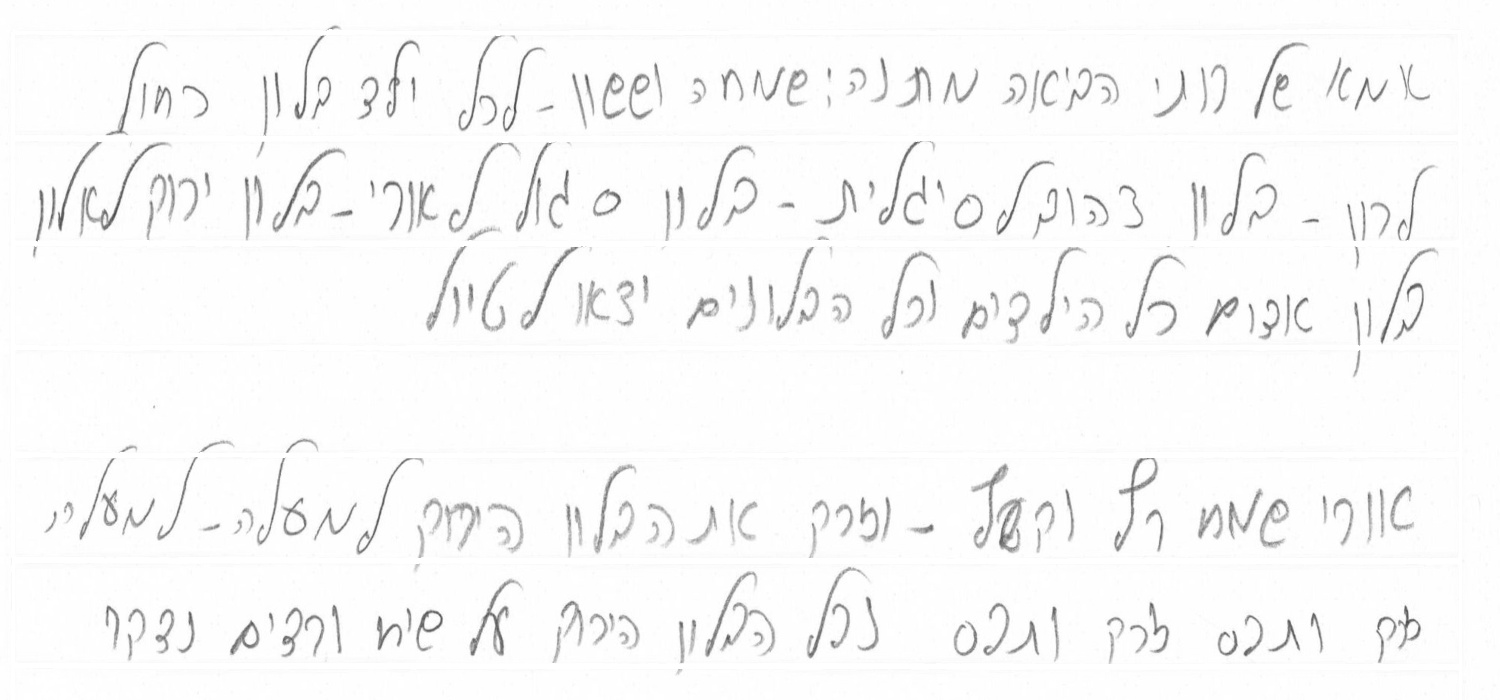 אמא של רותי הביאה מתנה; שמחה וששון - לכל ילד בלון כחול
לרון - בלון צהוב לסיגלית - בלון סגול לאורי - בלון ירוק לאלון
בלון אדום כל הילדים וכל הבלונים יצאו לטיול
אורי שמח רץ וקפץ - וזרק את הבלון הירוק למעלה - למעלה
זרק ותפס זרק ותפס נפל הבלון הירוק על שיח ורדים נדקר